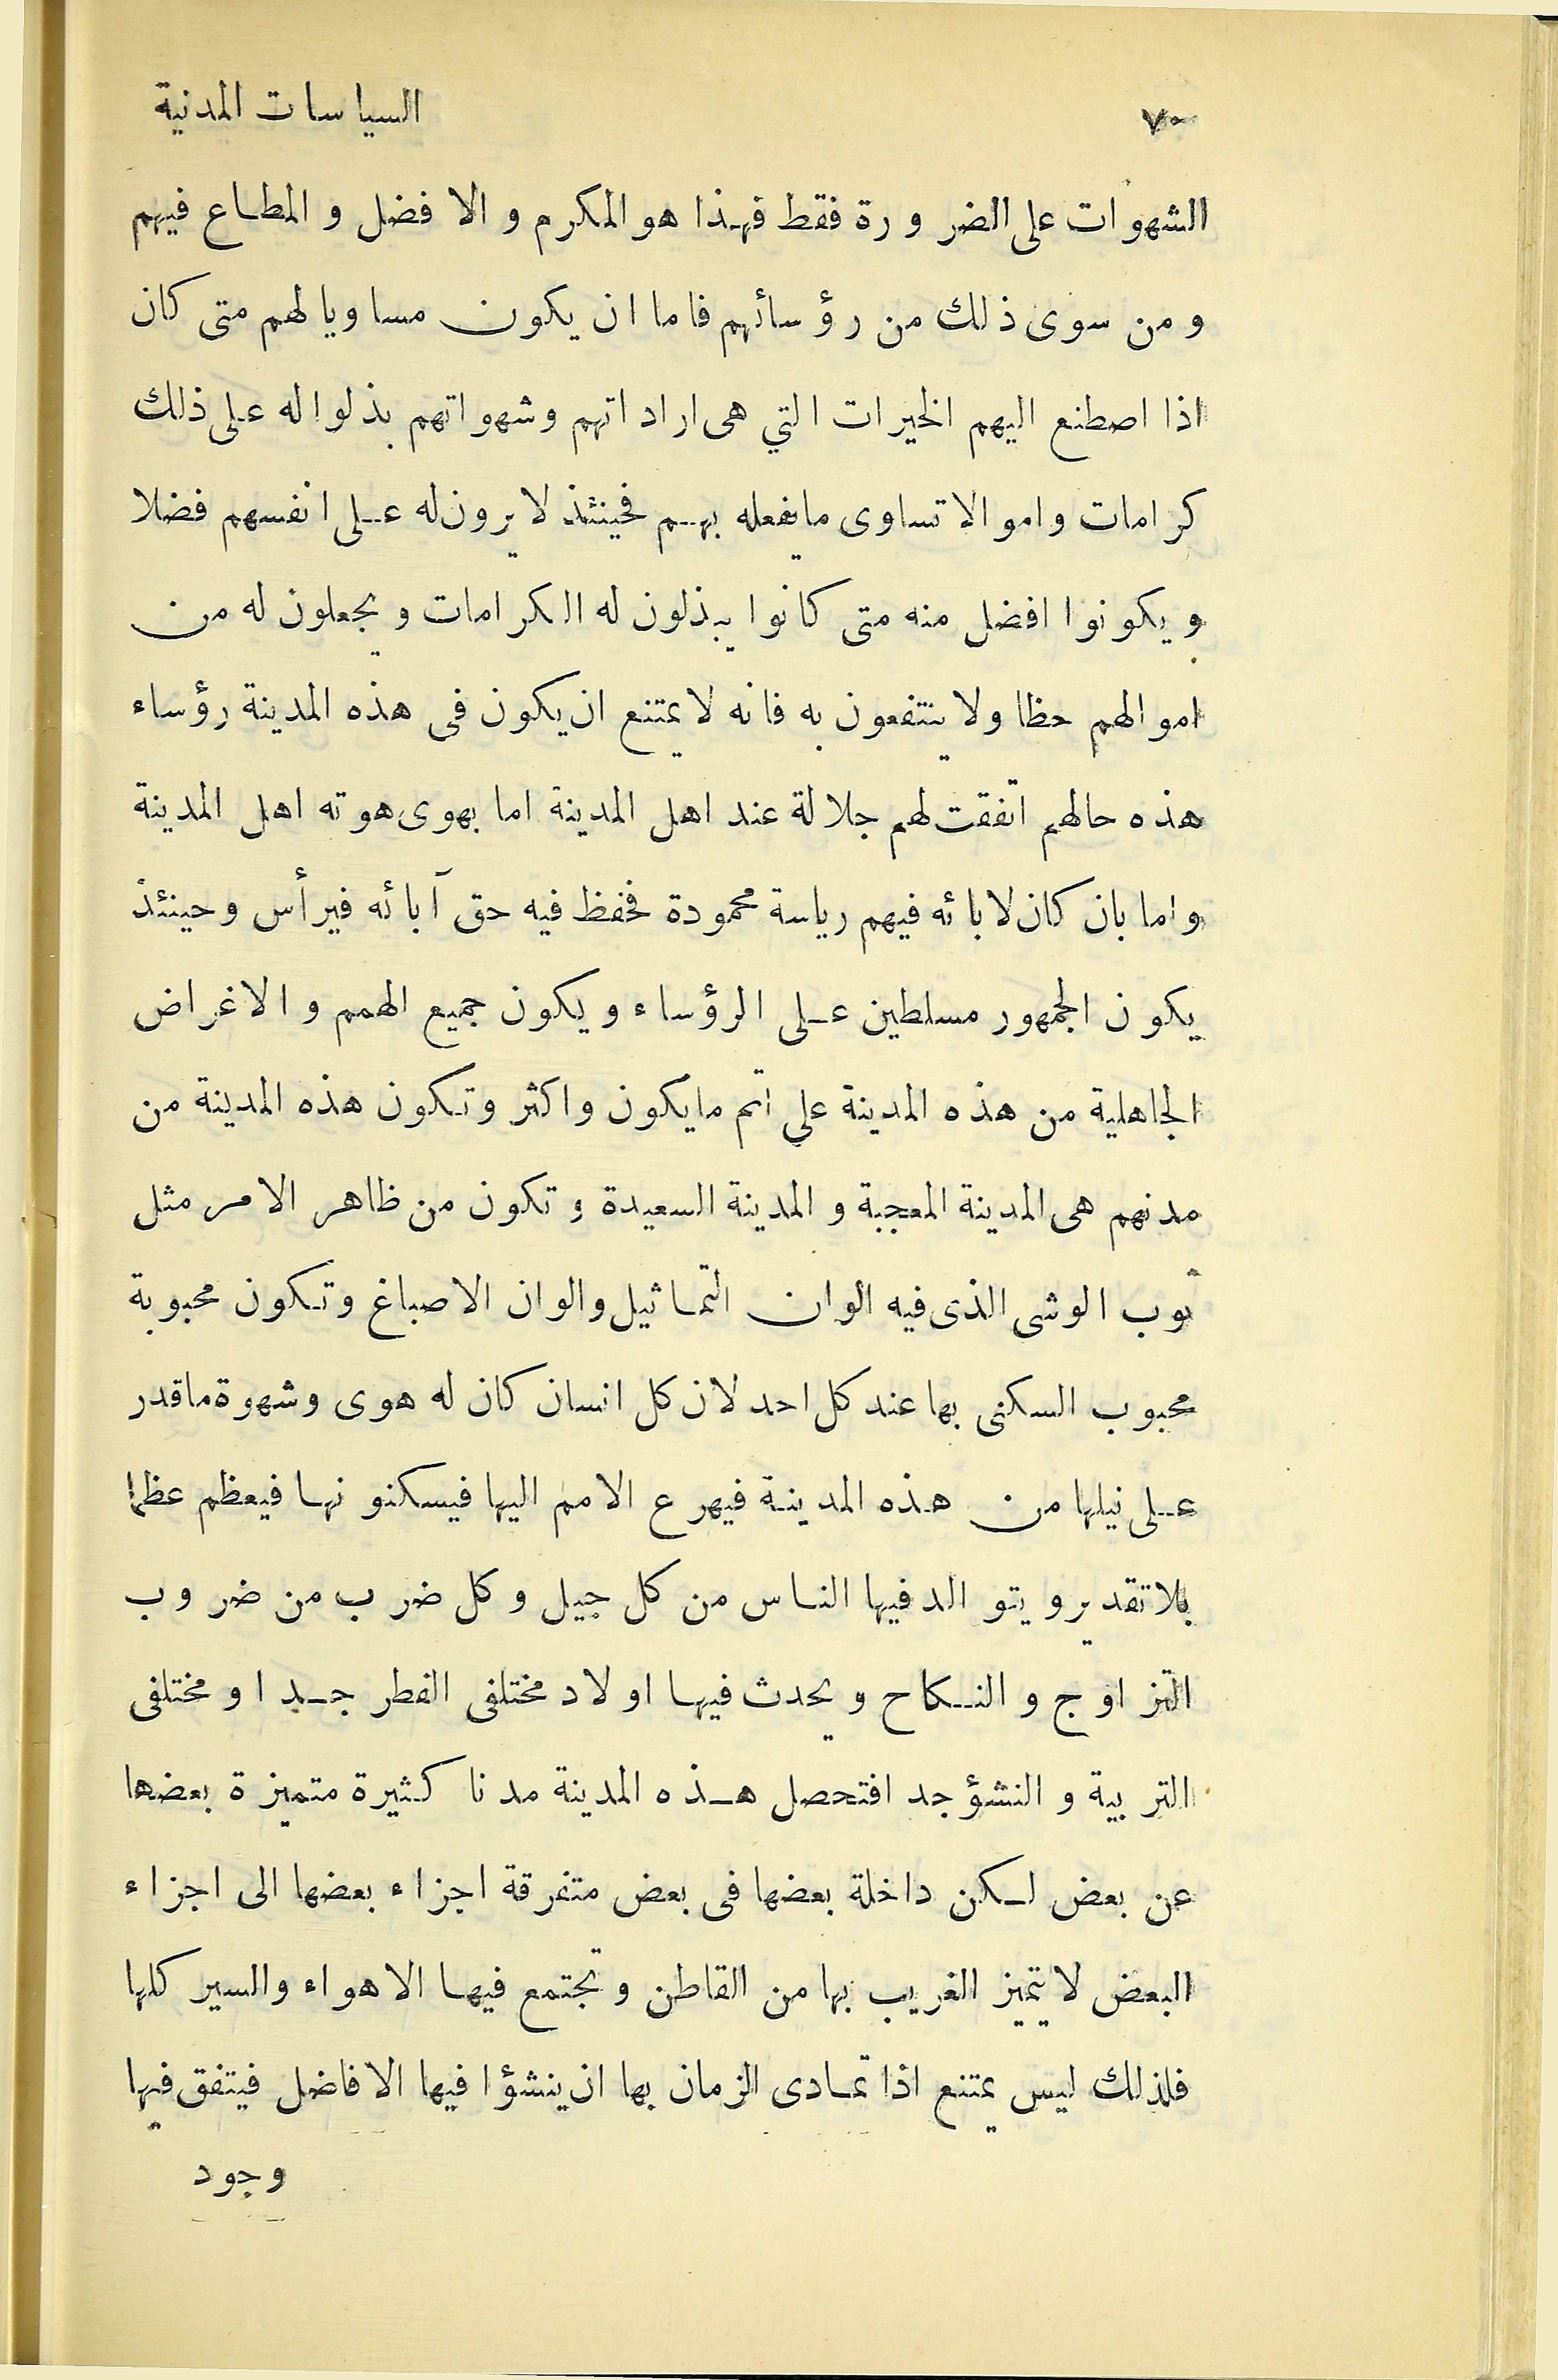 ٧٠ السياسات المدنية
الشهوات على الضرورة فقط فهذا هو المكرم والافضل والمطاع فيهم
ومن سوى ذلك من رؤسائهم فاما ان يكون مساويا لهم متى كان
اذا اصطنع اليهم الخيرات التي هى اراداتهم وشهواتهم بذلوا له على ذلك
كرامات واموالا تساوى مايفعله بهم فحينئذ لا يرون له على انفسهم فضلا
ويكونوا افضل منه متى كانوا يبذلون له الكرامات ويجعلون له من
اموالهم حظا ولا ينتفعون به فانه لا يمتنع ان يكون فى هذه المدينة رؤساء
هذه حالهم اتفقت لهم جلالة عند اهل المدينة اما بهوى هوته اهل المدينة
واما بان كان لابائه فيهم رياسة محمودة فحفظ فيه حق آبائه فيرأس وحينئذ
يكون الجمهور مسلطين على الرؤساء ويكون جميع الهمم والاغراض
الجاهلية من هذه المدينة على اتم مايكون واكثر وتكون هذه المدينة من
مدنهم هى المدينة المعجبة والمدينة السعيدة وتكون من ظاهر الامر مثل
ثوب الوشى الذى فيه الوان التماثيل والوان الاصباغ وتكون محبوبة
محبوب السكنى بها عند كل احد لان كل انسان كان له هوى وشهوة ماقدر
على نيلها من هذه المدينة فيهرع الامم اليها فيسكنونها فيعظم عظما
بلا تقدير ويتوالد فيها الناس من كل جيل وكل ضرب من ضروب
التزاوج والنكاح ويحدث فيها اولاد مختلفى الفطر جدا ومختلفى
التربية والنشؤ جدا فتحصل هذه المدينة مدنا كثيرة متميزة بعضها
عن بعض لكن داخلة بعضها فى بعض متفرقة اجزاء بعضها الى اجزاء
البعض لا يتميز الغريب بها من القاطن وتجتمع فيها الاهواء والسير كلها
فلذلك ليس يمتنع اذا تمادى الزمان بها ان ينشؤا فيها الافاضل فيتفق فيها
وجود